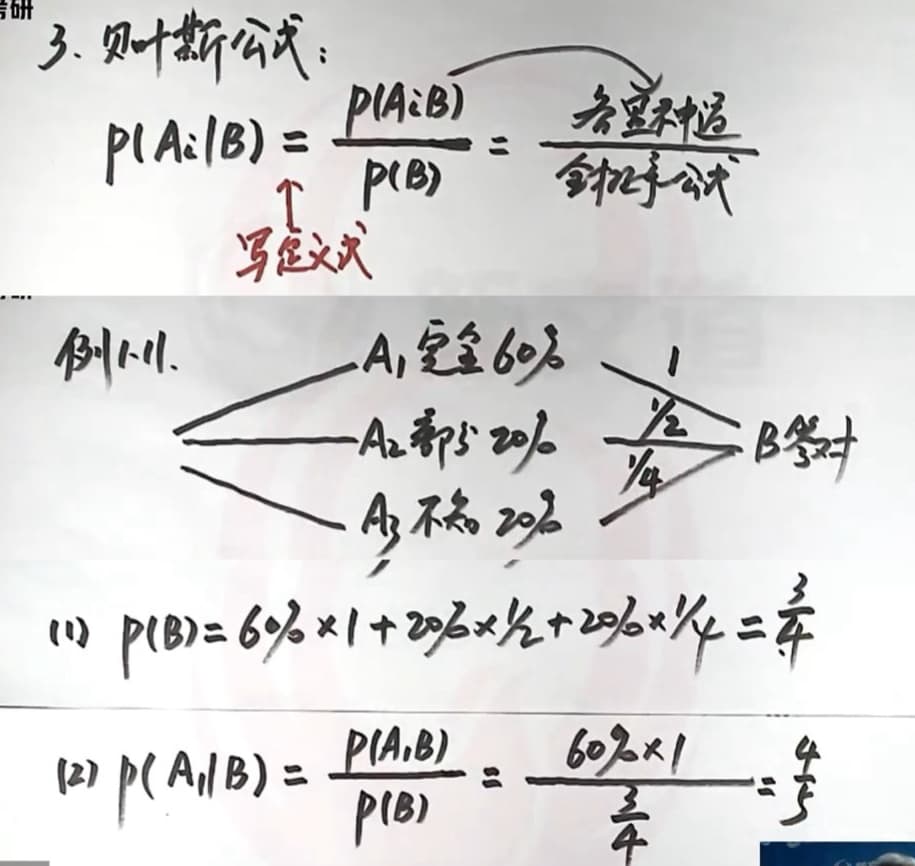 考研
3. 贝叶斯公式:
P(Ai|B) = P(AiB)/P(B) = 各里种适/全概率公式
写定义式
例1-11.
A₁ 完全 60% 1
A₂ 部分 20% 1/2 B答对
A₃ 不知 20% 1/4
(1) P(B)=60%×1+20%×1/2+20%×1/4=3/4
(2) P(A₁|B) = P(A₁B)/P(B) = 60%×1/(3/4) = 4/5